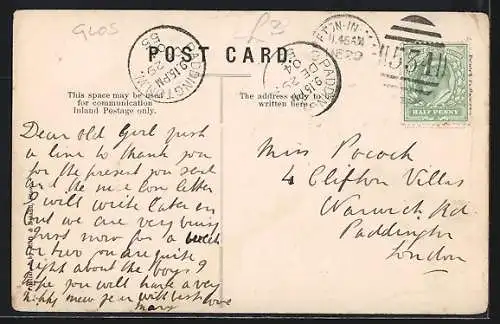 GLOS
£3
POST CARD.
PADDINGTON
9.15 PM
PADDIN
9.15
DE 29
534
HALF PENNY
This space may be used
for communication
Inland Postage only.
The address only to be
written here
Dear old Girl just
a line to thank you
for the present you sent
and the nice long letter
I will write later on
but we are very busy
just now for a week
or two you are quite
right about the boys I
hope you will have a very
happy new year with best love
Mary
Miss Pocock
4 Clifton Villas
Warwick Rd
Paddington
London